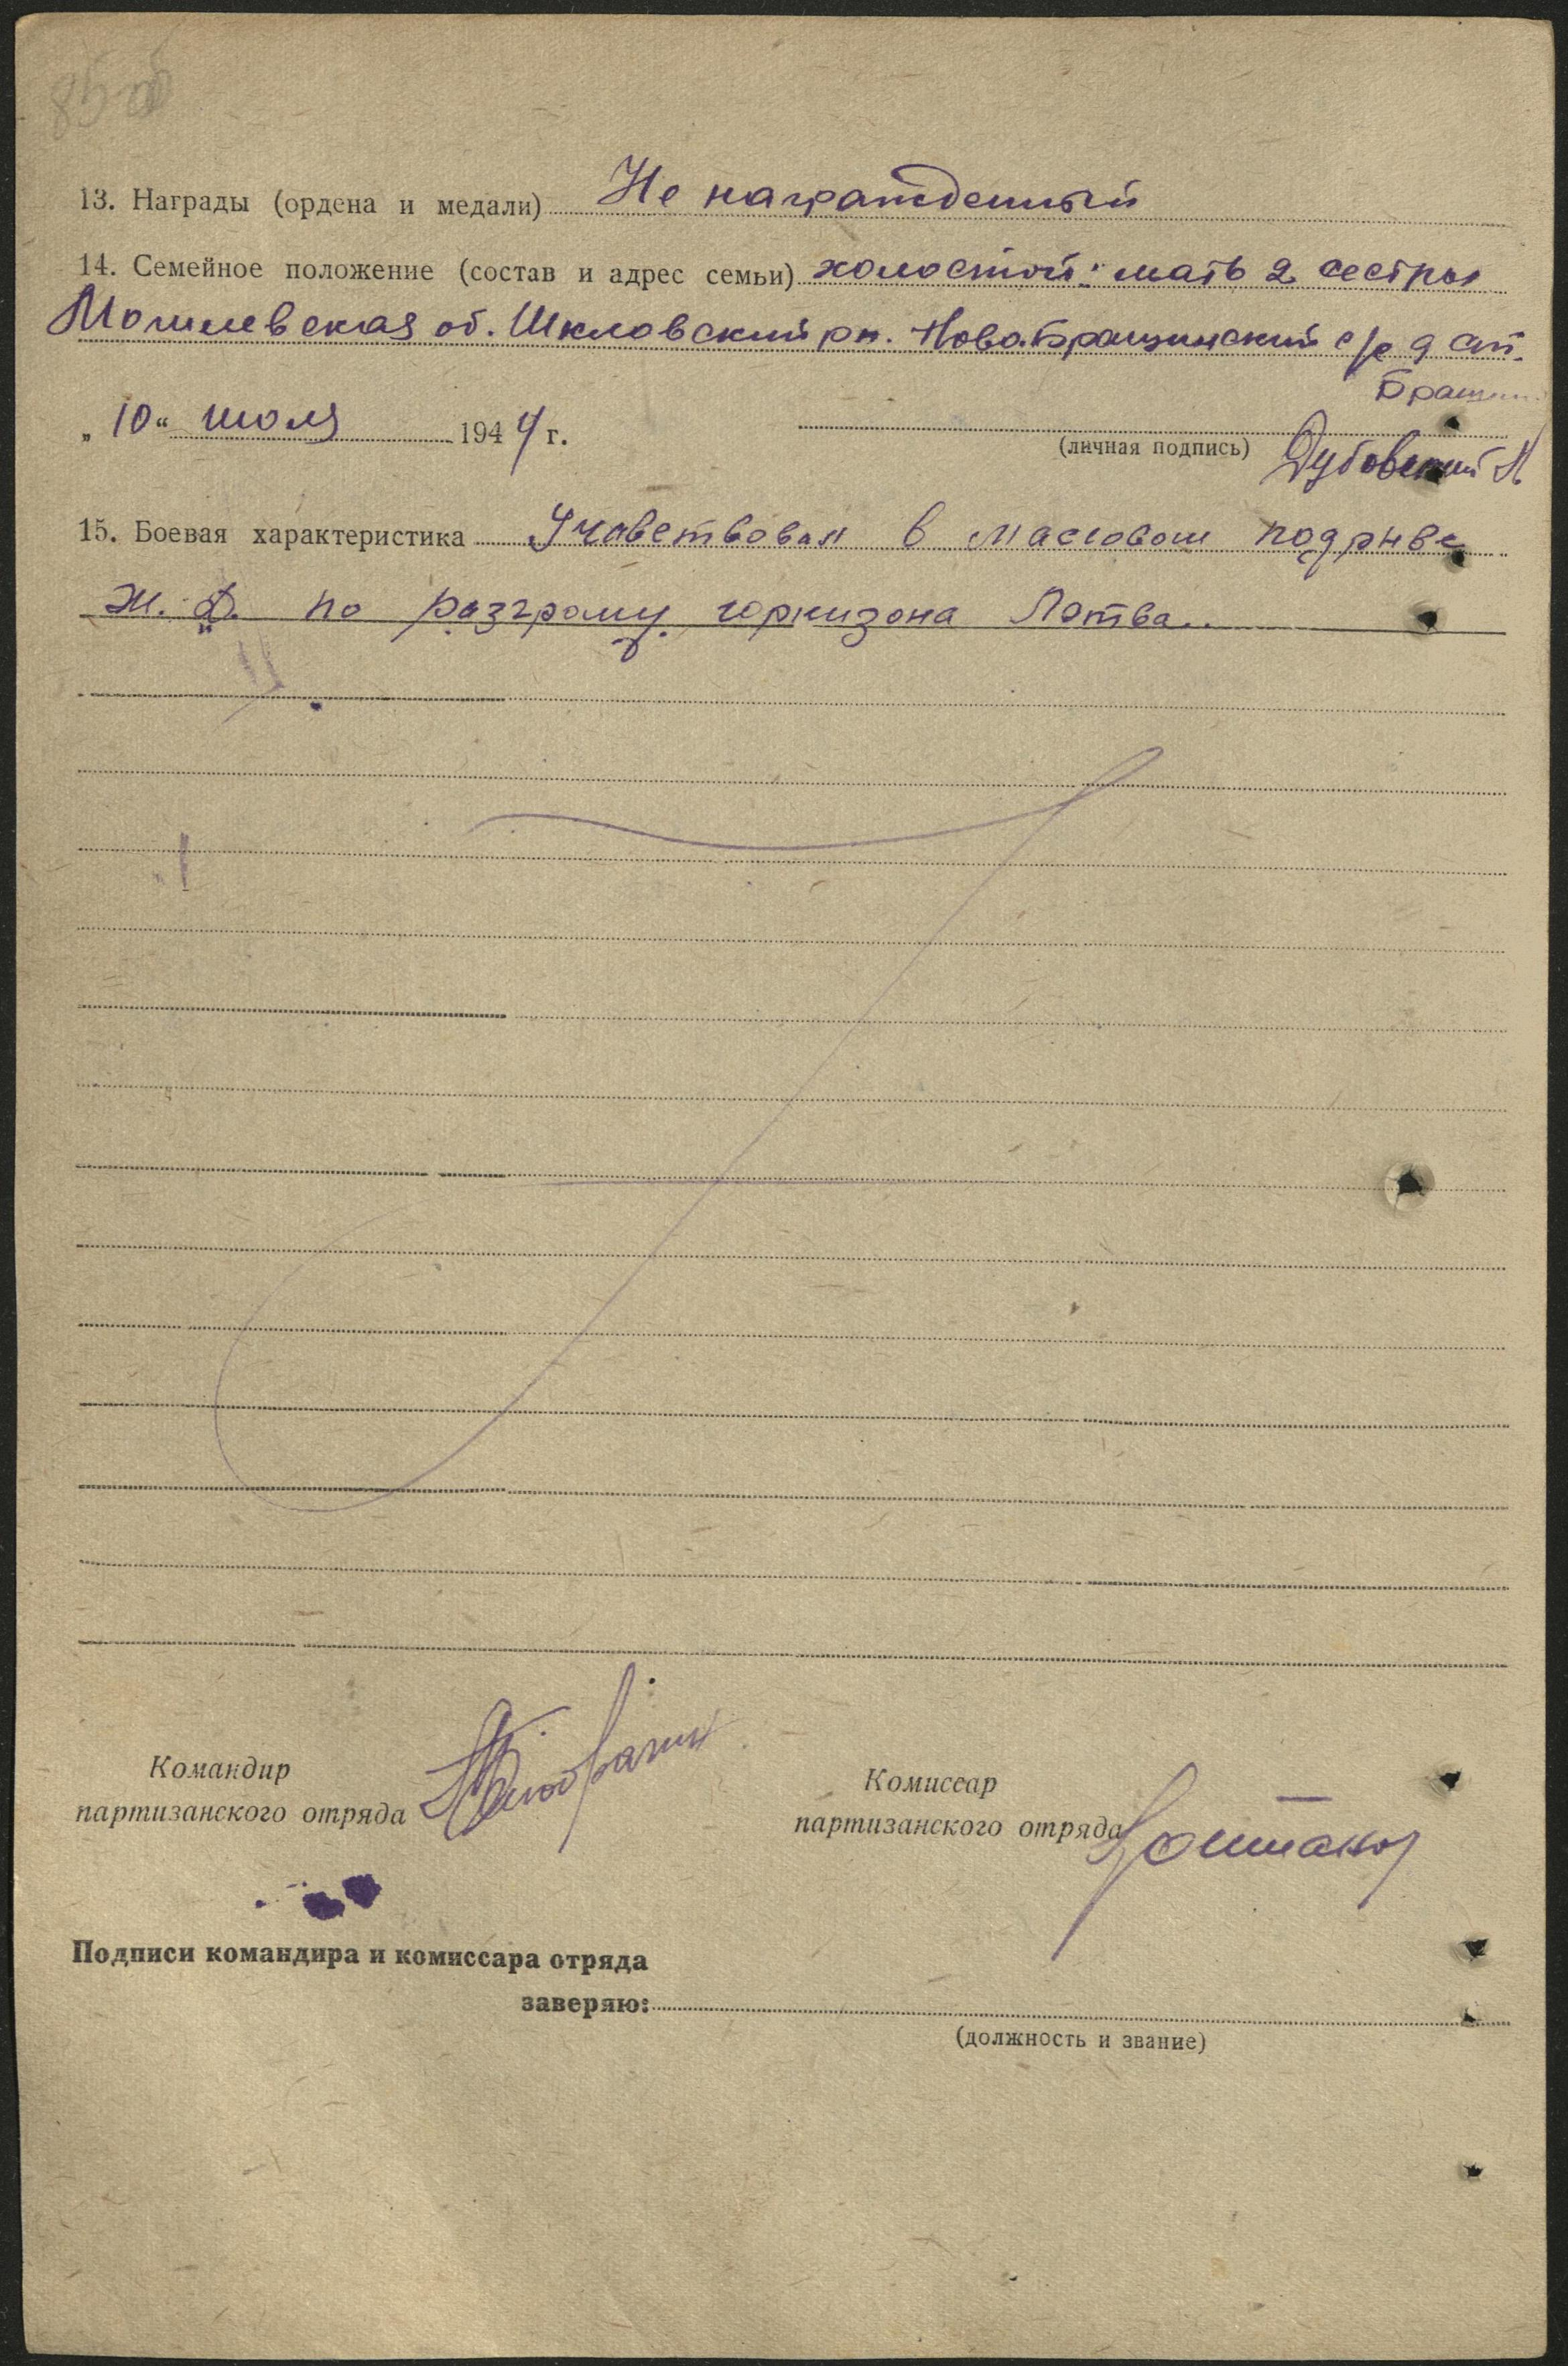 13. Награды (ордена и медали) Не награжденный
14. Семейное положение (состав и адрес семьи) холостой: мать 2 сестры
Могилевская об. Шкловский рн. Новобращинский с/с д ст.
„10“ июля 1944 г.
(личная подпись) Дубовский А
15. Боевая характеристика Учавствовал в массовом подрыве
Ж.Д. по разгрому горнизона Лотва..
Командир
партизанского отряда
Комиссар
партизанского отряда
Подписи командира и комиссара отряда
заверяю:
(должность и звание)